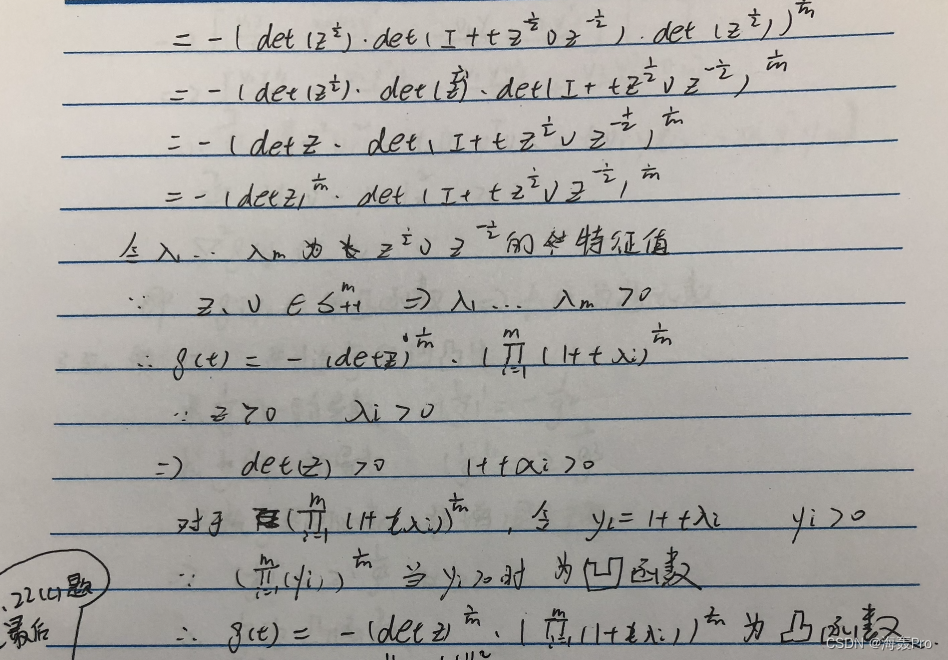 = - ( det (z^½) · det ( I + t z^½ υ z^-½ ) · det (z^½) )^1/m
= - ( det (z^½) · det (z^½) · det ( I + t z^½ υ z^-½ )^1/m
= - ( det z · det ( I + t z^½ υ z^-½ )^1/m
= - (det z)^1/m · det ( I + t z^½ υ z^-½ )^1/m
令 λ₁ … λm 为 z^½ υ z^-½ 的 特征值
∵ z、υ ∈ S^m_++ ⇒ λ₁ … λm > 0
∴ g(t) = - (det z)^1/m · ( ∏_{i=1}^m (1+tλi)^1/m
∵ z > 0 λi > 0
⇒) det(z) > 0 1+tαi > 0
对于 ( ∏_{i=1}^m (1+tλi) )^1/m , 令 yi = 1+tλi yi > 0
∵ ( ∏_{i=1}^m (yi) )^1/m 当 yi > 0 时 为 凹函数
∴ g(t) = - (det z)^1/m · ( ∏_{i=1}^m (1+tλi) )^1/m 为 凸函数
.22(c)题
最后
CSDN @海轰Pro